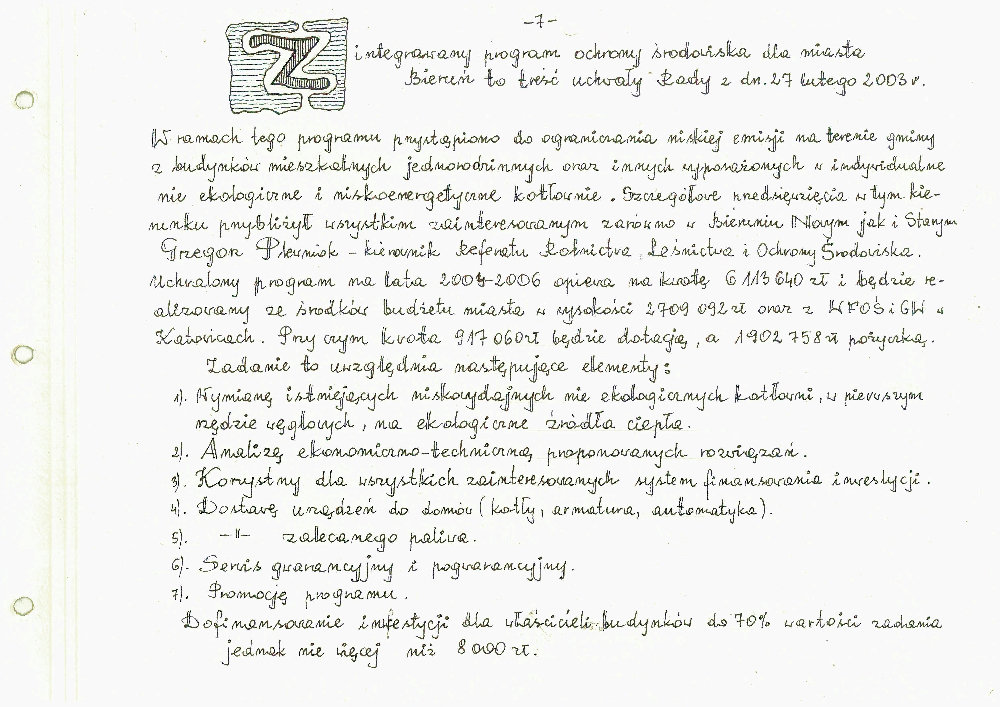 -7-
Zintegrowany program ochrony środowiska dla miasta
Bieruń to treść uchwały Rady z dn. 27 lutego 2003 r.
W ramach tego programu przystąpiono do ograniczania niskiej emisji na terenie gminy
z budynków mieszkalnych jednorodzinnych oraz innych wyposażonych w indywidualne
nie ekologiczne i niskoenergetyczne kotłownie. Szczegółowe przedsięwzięcia w tym kie-
runku przybliżył wszystkim zainteresowanym zarówno w Bieruniu Nowym jak i Starym
Grzegorz Plewniok - kierownik Referatu Rolnictwa, Leśnictwa i Ochrony Środowiska.
Uchwalony program na lata 2004-2006 opiewa na kwotę 6 113 640 zł i będzie re-
alizowany ze środków budżetu miasta w wysokości 2709 092 zł oraz z WFOŚiGW w
Katowicach. Przy czym kwota 917 060 zł będzie dotacją, a 1902 758 zł pożyczką.
Zadanie to uwzględnia następujące elementy:
1). Wymianę istniejących niskowydajnych nie ekologicznych kotłowni, w pierwszym
rzędzie węglowych, na ekologiczne źródła ciepła.
2). Analizę ekonomiczno-techniczną proponowanych rozwiązań.
3). Korzystny dla wszystkich zainteresowanych system finansowania inwestycji.
4). Dostawę urządzeń do domów (kotły, armatura, automatyka).
5). -"- zalecanego paliwa.
6). Serwis gwarancyjny i pogwarancyjny.
7). Promocję programu.
Dofinansowanie inwestycji dla właścicieli budynków do 70% wartości zadania
jednak nie więcej niż 8 000 zł.